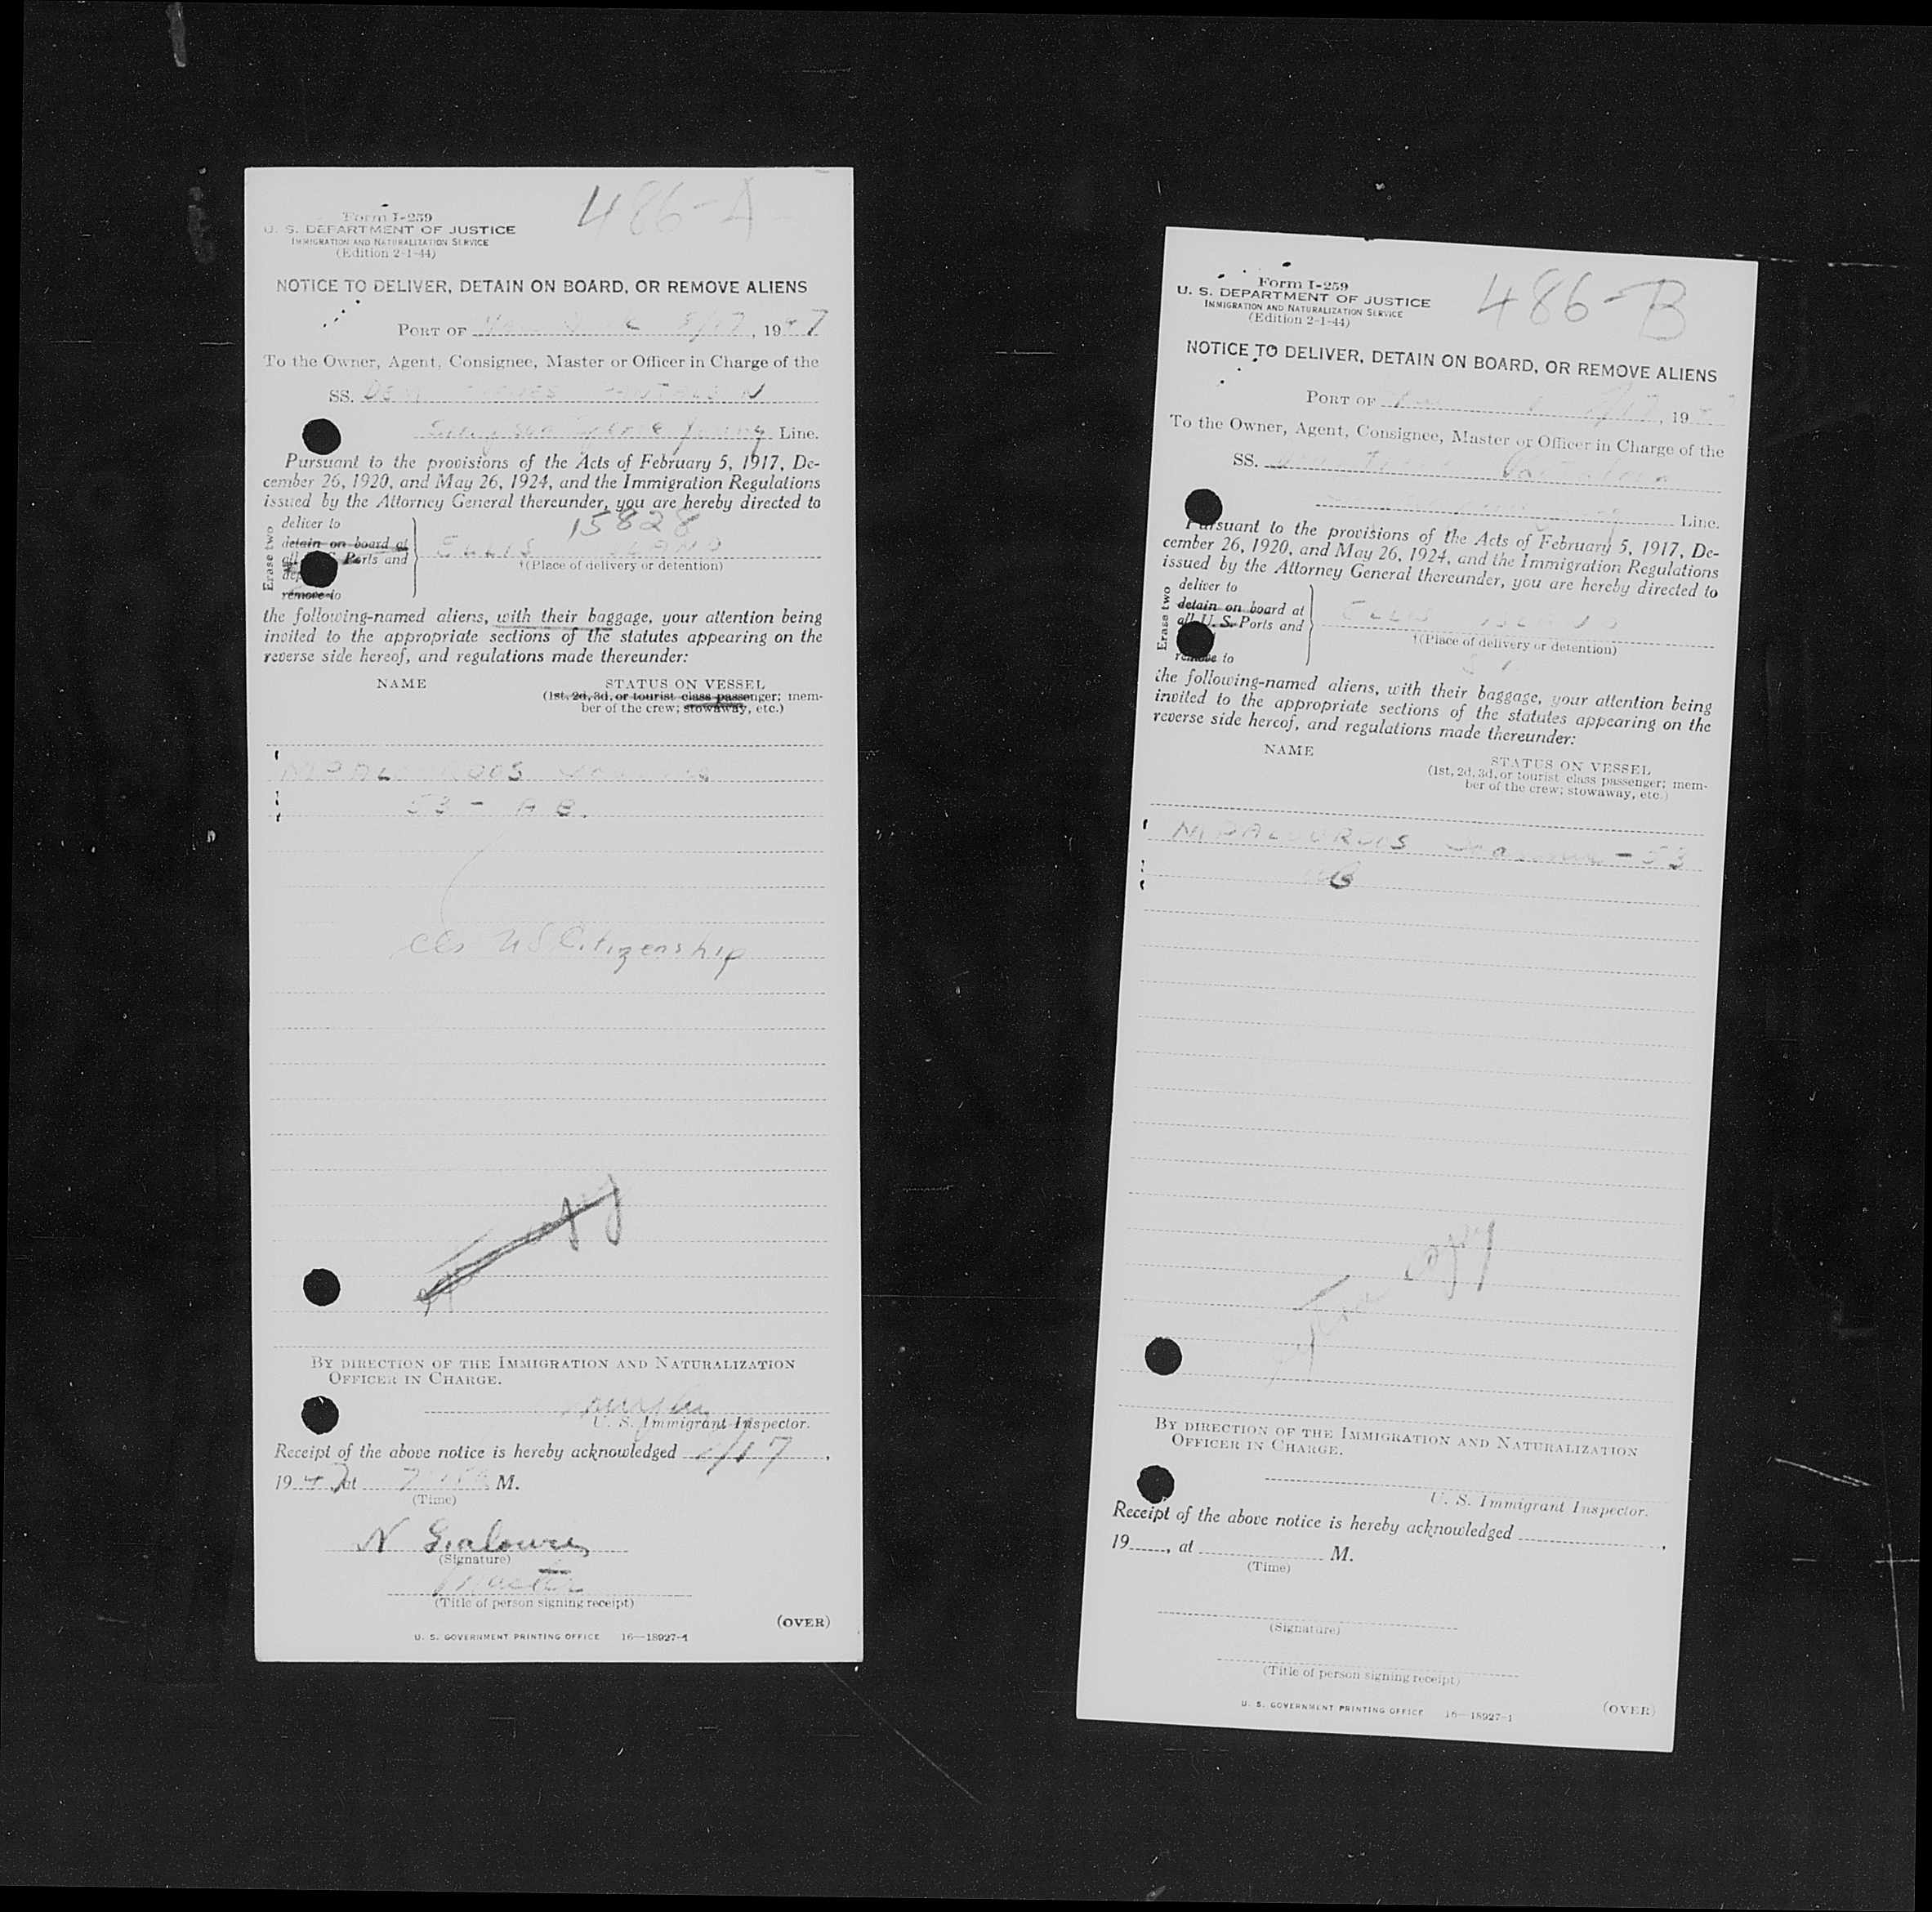 486-A
Form I-259
U. S. DEPARTMENT OF JUSTICE
IMMIGRATION AND NATURALIZATION SERVICE
(Edition 2-1-44)
NOTICE TO DELIVER, DETAIN ON BOARD, OR REMOVE ALIENS
PORT OF 17, 1947
To the Owner, Agent, Consignee, Master or Officer in Charge of the
SS.
Line.
Pursuant to the provisions of the Acts of February 5, 1917, De-
cember 26, 1920, and May 26, 1924, and the Immigration Regulations
issued by the Attorney General thereunder, you are hereby directed to
15828
Erase two
deliver to
detain on board at
all Ports and
remove to
ELLIS ISLAND
†(Place of delivery or detention)
the following-named aliens, with their baggage, your attention being
invited to the appropriate sections of the statutes appearing on the
reverse side hereof, and regulations made thereunder:
NAME
STATUS ON VESSEL
(1st, 2d, 3d, or tourist class passenger; mem-
ber of the crew; stowaway, etc.)
53 - A B.
US Citizenship
BY DIRECTION OF THE IMMIGRATION AND NATURALIZATION
OFFICER IN CHARGE.
U. S. Immigrant Inspector.
Receipt of the above notice is hereby acknowledged /17,
1947 at M.
(Time)
N
(Signature)
Master
(Title of person signing receipt)
(OVER)
U. S. GOVERNMENT PRINTING OFFICE 16—18927-1
486-B
Form I-259
U. S. DEPARTMENT OF JUSTICE
IMMIGRATION AND NATURALIZATION SERVICE
(Edition 2-1-44)
NOTICE TO DELIVER, DETAIN ON BOARD, OR REMOVE ALIENS
PORT OF , 19
To the Owner, Agent, Consignee, Master or Officer in Charge of the
SS.
Line.
Pursuant to the provisions of the Acts of February 5, 1917, De-
cember 26, 1920, and May 26, 1924, and the Immigration Regulations
issued by the Attorney General thereunder, you are hereby directed to
Erase two
deliver to
detain on board at
all U. S. Ports and
remove to
ELLIS ISLAND
†(Place of delivery or detention)
the following-named aliens, with their baggage, your attention being
invited to the appropriate sections of the statutes appearing on the
reverse side hereof, and regulations made thereunder:
NAME
STATUS ON VESSEL
(1st, 2d, 3d, or tourist class passenger; mem-
ber of the crew; stowaway, etc.)
- 53
copy
BY DIRECTION OF THE IMMIGRATION AND NATURALIZATION
OFFICER IN CHARGE.
U. S. Immigrant Inspector.
Receipt of the above notice is hereby acknowledged ,
19 , at M.
(Time)
(Signature)
(Title of person signing receipt)
U. S. GOVERNMENT PRINTING OFFICE 16—18927-1
(OVER)